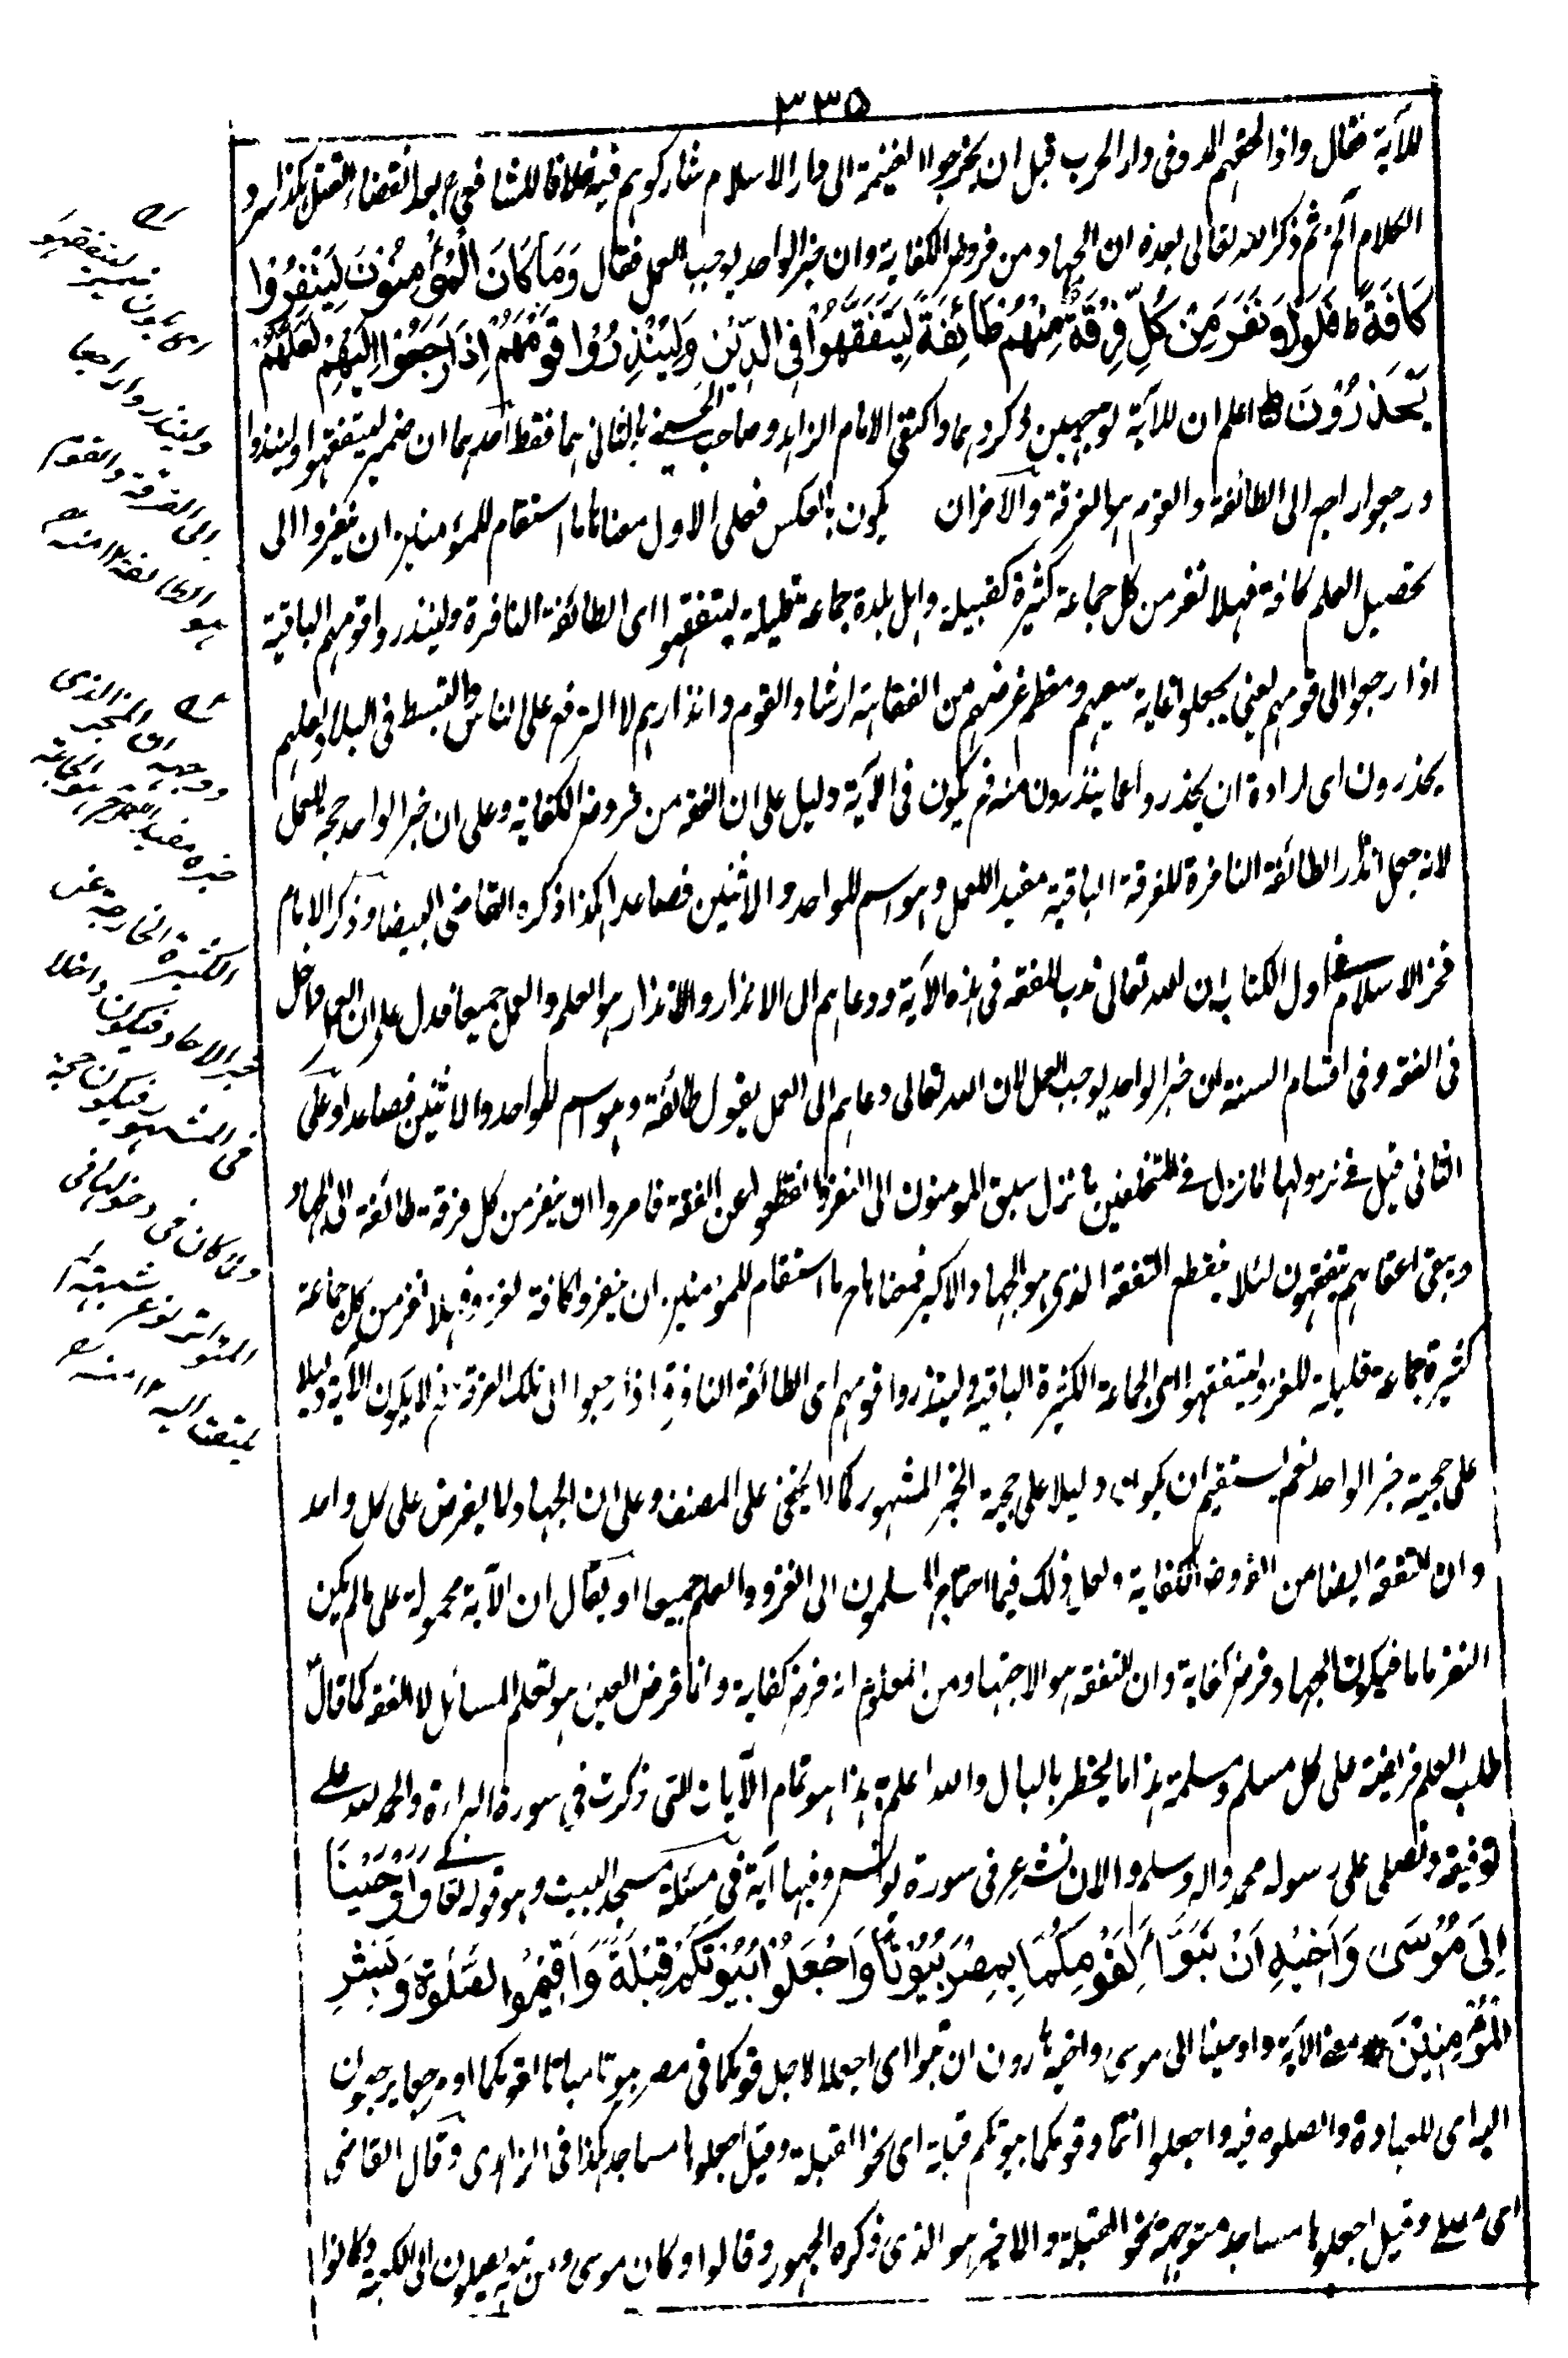 ٣٣٥
للآية فقال واذا لحقهم المدد فى دار الحرب قبل ان يخرجوا الغنيمة الى دار الاسلام شاركوهم فيه خلافا للشافعي بعد انقضاء القتل هكذا سرد
الكلام الخ ثم ذكر الله تعالى بعده ان الجهاد من فروض الكفاية وان خبر الواحد يوجب العمل فقال وَمَا كَانَ الْمُؤْمِنُوْنَ لِيَنْفِرُوْا
كَافَّةً ط فَلَوْلَا نَفَرَ مِنْ كُلِّ فِرْقَةٍ مِنْهُمْ طَائِفَةٌ لِيَتَفَقَّهُوْا فِى الدِّيْنِ وَلِيُنْذِرُوْا قَوْمَهُمْ اِذَا رَجَعُوْا اِلَيْهِمْ لَعَلَّهُمْ
يَحْذَرُوْنَ ط اعلم ان للآية توجيهين ذكروهما واكتفى الامام الزاهد وصاحب الحسينى بالثانى بهما فقط احدهما ان ضمير ليتفقهوا ولينذروا
ورجعوا راجع الى الطائفة والقوم هو الفرقة والآخر ان يكون بالعكس فعلى الاول معناه ما استقام للمؤمنين ان ينفروا الى
تحصيل العلم كافة فهلا نفر من كل جماعة كثيرة كقبيلة واهل بلدة جماعة قليلة ليتفقهوا اى الطائفة النافرة ولينذروا قومهم الباقية
اذا رجعوا الى قومهم يعنى يجعلوا غاية سعيهم ومعظم غرضهم من الفقاهة ارشاد القوم وانذارهم لا الترفع على الناس والتبسط فى البلاد لعلهم
يحذرون اى ارادة ان يحذروا عما ينذرون منه فح يكون فى الآية دليل على ان الفقه من فروض الكفاية وعلى ان خبر الواحد حجة للعمل
لانه جعل انذار الطائفة النافرة للفرقة الباقية مفيدا للعمل وهو اسم للواحد والاثنين فصاعدا هكذا ذكره القاضى البيضاو وذكر الامام
فخر الاسلام فى اول الكتاب ان الله تعالى ندب للفقه فى هذه الآية ودعاهم الى الانذار والانذار هو العلم والعمل جميعا فدل على ان العمل داخل
فى الفقه وفى اقسام السنة ان خبر الواحد يوجب العمل لان الله تعالى دعاهم الى العمل بقول طائفة وهو اسم للواحد والاثنين فصاعدا وعلى
الثانى قيل فى نزولها لما نزل فى المتخلفين ما نزل سبق المؤمنون الى النفير وانقطعوا عن الفقه فامروا ان ينفر من كل فرقة طائفة الى الجهاد
ويبقى اعقابهم يتفقهون لئلا ينقطع التفقه الذى هو الجهاد الاكبر فمعناه ح ما استقام للمؤمنين ان ينفروا كافة لغزو فهلا نفر من كل جماعة
كثيرة جماعة قليلة للغزو ليتفقهوا اى الجماعة الكثيرة الباقية ولينذروا قومهم اى الطائفة النافرة اذا رجعوا الى تلك الفرقة فح لا يكون الآية دليلا
على حجية خبر الواحد نعم يستقيم ان يكون دليلا على حجية الخبر المشهور كما لا يخفى على المصنف وعلى ان الجهاد لما يفرض على كل واحد
وان التفقه ايضا من الفروض الكفاية ولعل ذلك فيما احتاج المسلمون الى الغزو والعلم جميعا او يقال ان الآية محمولة على ما لم يكن
النفر عاما فيكون الجهاد فرض كفاية وان التفقه هو الاجتهاد ومن المعلوم انه فرض كفاية وانما فرض العين هو تعلم المسائل لا الفقه كما قال
طلب العلم فريضة على كل مسلم ومسلمة هذا ما يخطر بالبال والله اعلم هذا هو تمام الآيات التى ذكرت في سورة البراءة والحمد لله على
توفيقه ونصلى على رسوله محمد واله وسلم والان نشرع فى سورة يونس وفيها آية فى مسئلة مسجد البيت وهو قوله تعالى وَاَوْحَيْنَا
اِلٰى مُوْسٰى وَاَخِيْهِ اَنْ تَبَوَّاٰ لِقَوْمِكُمَا بِمِصْرَ بُيُوْتًا وَّاجْعَلُوْا بُيُوْتَكُمْ قِبْلَةً وَّاَقِيْمُوا الصَّلٰوةَ وَبَشِّرِ
الْمُؤْمِنِيْنَ معنى الآية واوحينا الى موسى واخيه هارون ان تبوا اى اجعلا لاجل قومكما فى مصر بيوتا مباتا لقومكما او مرجعا يرجعون
اليه اى للعبادة والصلوة فيه واجعلوا انتما وقومكما بيوتكم قبلة اى نحو القبلة وقيل اجعلوها مساجد هكذا فى الزاهدى وقال القاضى
اى مصلى وقيل اجعلوها مساجد متوجهة نحو القبلة والاخير هو الذى ذكره الجمهور وقالوا وكان موسى ومن تبعه يصلون الى الكعبة وكانوا
اى يكون ضمير ليتفقهوا
ولينذروا راجعا
الى الفرقة والقوم
هو الطائفة ١٢ منه
ووجهه ان المخبر الذى
خبره مفيد للعمل هو الجماعة
الكثيرة الخارجة عن
خبر الاحاد فيكون داخلا
فى المشهور فيكون حجة
وان كان فى دخولها فى
المتواتر نوع شبهة
يلتفت اليه ١٢ منه